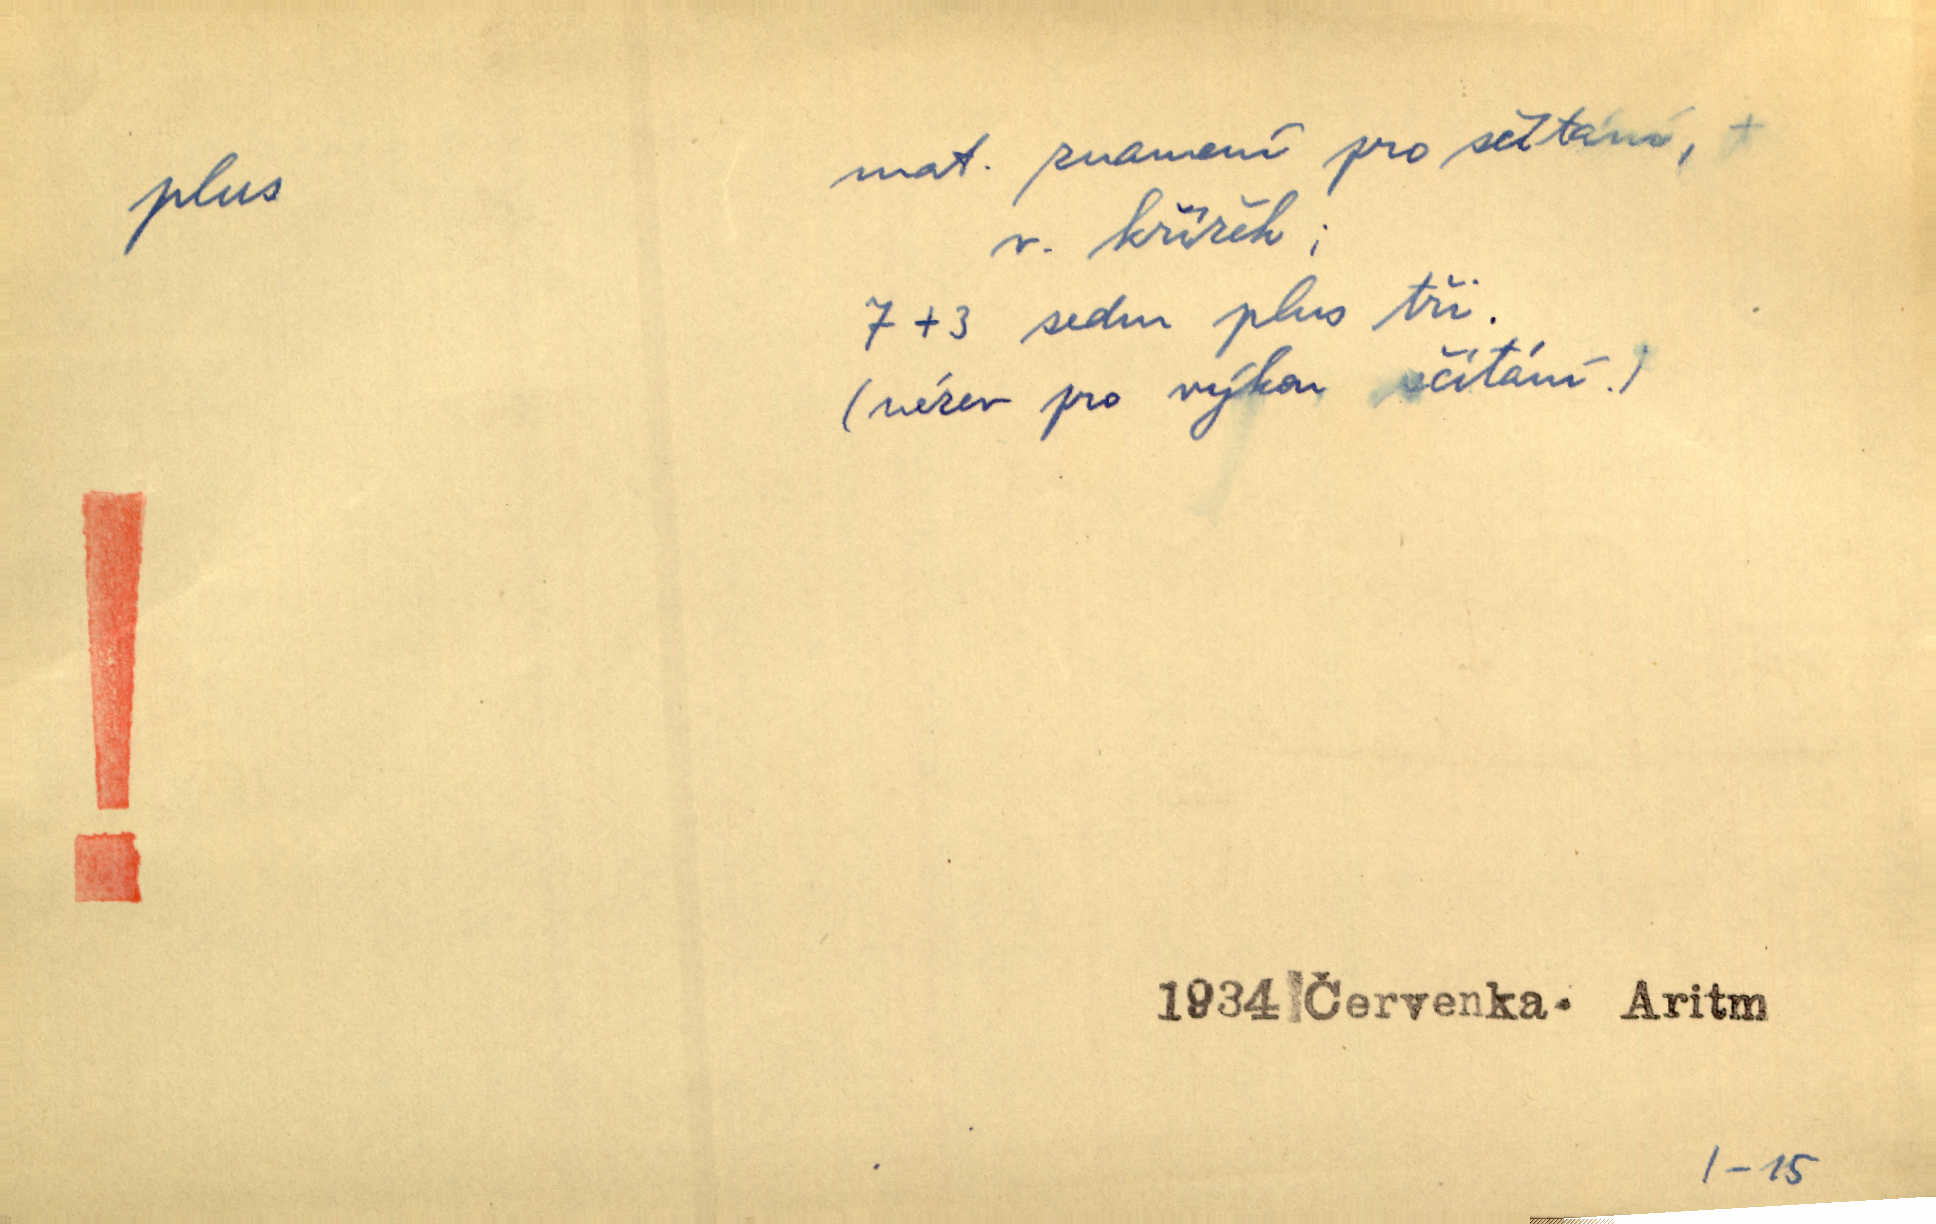 plus
mat. znamení pro sčítání, +
v. křížek;
7 + 3 sedm plus tři.
(název pro výkon sčítání.)
!
1934 Červenka. Aritm
I-15